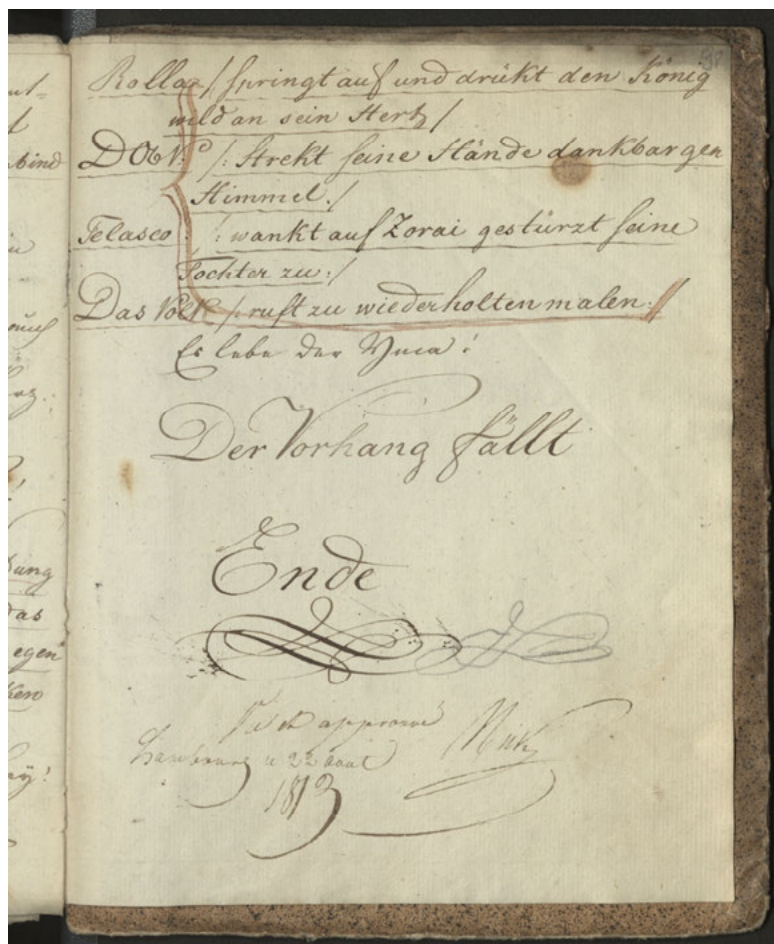 Rolla /: springt auf und drükt den König
wild an sein Hertz /
/: Strekt seine Hände dankbar gen
Himmel. /
Telasco /: wankt auf Zorai gestürzt seine
Tochter zu :/
Das Volk /: ruft zu wiederholten malen :/
Es lebe der Ynca !
Der Vorhang fällt
Ende
Vu et approuvé
Hambourg le 22 aout
1813